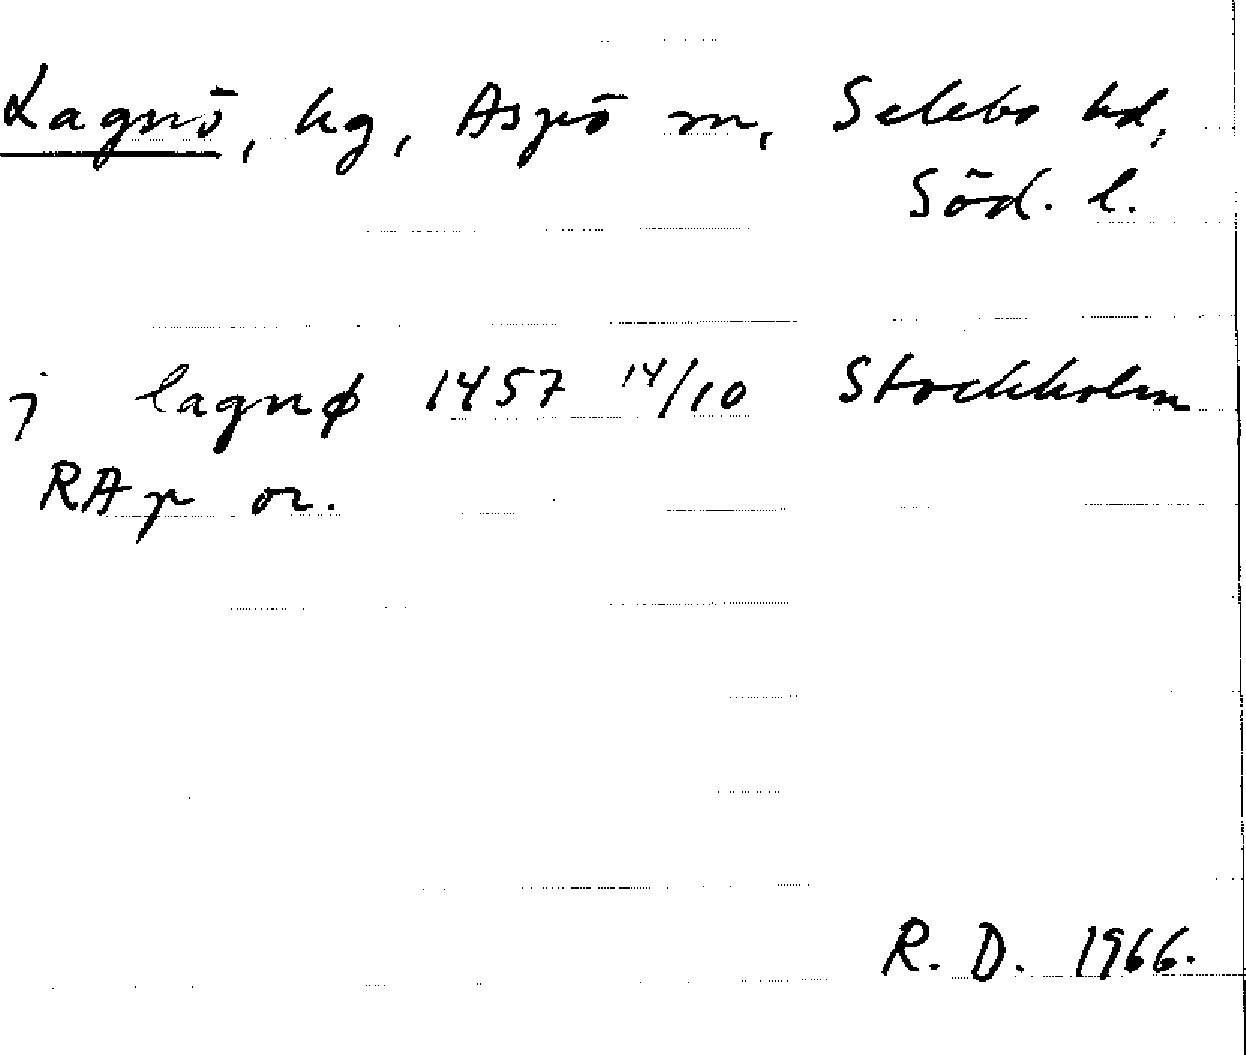 Lagnö, hg, Aspö sn, Selebo hd,
Söd. l.
j lagnø 1457 14/10 Stockholm
RAp or.
R. D. 1966.